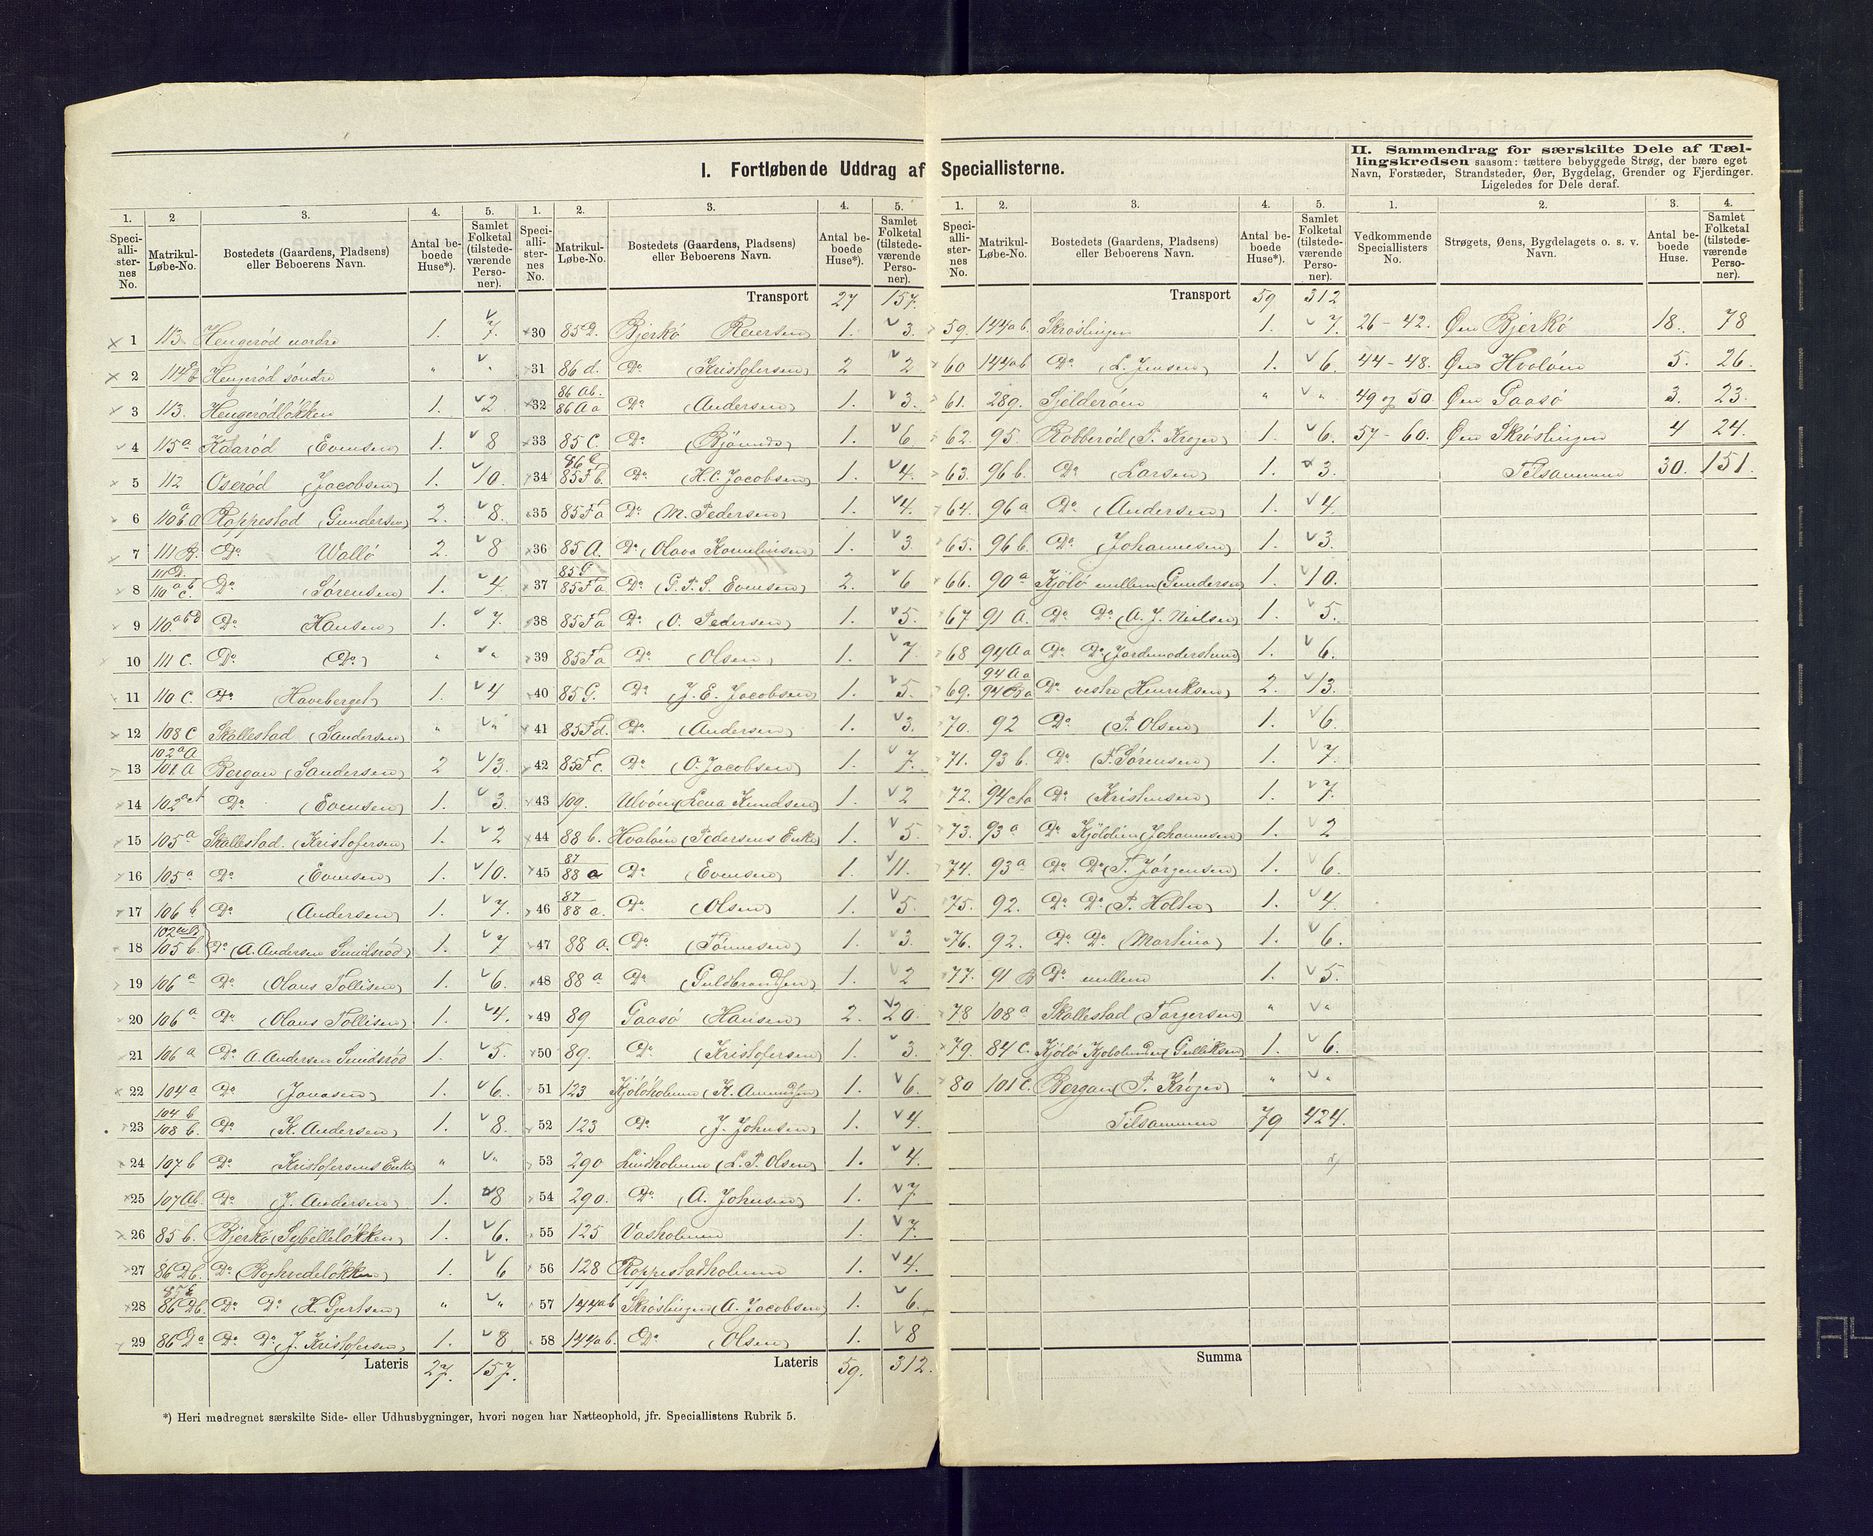 I. Fortløbende Uddrag af Speciallisterne.
II. Sammendrag for særskilte Dele af Tæl-
lingskredsen saasom: tættere bebyggede Strøg, der bære eget
Navn, Forstæder, Strandsteder, Øer, Bygdelag, Grender og Fjerdinger.
Ligeledes for Dele deraf.
1. 2 3. 4. 5.
Speci-alli-ster-nes No. Matrikul-Løbe-No. Bostedets (Gaardens, Pladsens) eller Beboerens Navn. Antal be-boede Huse*). Samlet Folketal (tilstede-værende Perso-ner).
1 113 Hengerød nordre 1. 7.
2 114 Hengerød söndre " "
3 113. Hengerødløkken 1. 2
4 115a (Evensen) 1. 8
5 112 Oserød (Jacobsen) 1. 10.
6 Roppestad (Gundersen) 2. 8.
7 111 B. Do Vallö 2. 8
8 111 D. 110 a b c. Do Sørensen) 1. 4
9 Do Hansen) 1. 7.
10 111 C. Do (Do) " "
11 110 C. Do Haveberget) 1. 4
12 108 C Skallestad (Sandersen) " "
13 102 a A 101 A Bergan (Sandersen) 2 13.
14 Do (Evensen) 1. 3.
15 105a Skallestad. (Kristofersen) 1. 2
16 105a Do (Evensen) 1. 10.
17 106 b Do (Andersen) 1. 7.
18 105 b. Do (A. Andersen Sundsrød) 1. 7
19 106a Do (Olaus Tollisen) 1. 6.
20 106a Do (Olaus Tollisen) 1. 4.
21 106a Do A. Andersen Sundsrød 1. 5.
22 104a Do (Jonasen) 1. 6.
23 104 b 108 b. Do (K. Andersen) 1. 8.
24 107 b Do Kristofersens Enke " "
25 107 Ab. Do (J. Andersen) 1. 8
26 85 b. Bjerkö (Sybilleløkken) 1. 6.
27 86 Db. Do (Boghvedeløkken) 1. 6
28 86 Db. Do Do (H. Gjertsen) " "
29 86 Da Do Do (J. Kristofersen) 1. 8
Lateris 27. 157.
1. 2. 3. 4. 5.
Speci-alli-ster-nes No. Matrikul-Løbe-No. Bostedets (Gaardens, Pladsens) eller Beboerens Navn. Antal be-boede Huse*). Samlet Folketal (tilstede-værende Perso-ner).
Transport 27 157.
30 85 D. Bjerkö Reiersen) 1. 3.
31 86 d. Do (Kristofersen) 2 2
32 86 Ab. 86 Aa Do (Andersen) 1. 3.
33 85 C. Do 1. 6.
34 85 Fb. Do (H. C. Jacobsen) 1. 4.
35 85 Fa Do (M. Pedersen) 1. 4.
36 85 A. Do (Olava Kornelinsen) 1. 3.
37 85 G 85 Fa Do (G. P. S. Evensen) 2. 6
38 85 Fa Do (O. Pedersen) 1. 5.
39 85 Fa Do (Olsen) 1. 7.
40 85 G. Do (J. E. Jacobsen) 1. 5.
41 85 Fd. Do (Andersen) 1. 3.
42 85 Fc. Do (O. Jacobsen) 1. 7.
43 109. Ulvöen (Lena Knudsen) 1. 2
44 88 b. Hvalöen (Pedersens Enke) 1. 5.
45 87 88 a Do (Evensen) 1. 11.
46 87 88 a. Do (Olsen) 1. 5.
47 88 a. Do (Tönnesen) 1. 3.
48 88 a Do (Guldbrandsen) 1. 2
49 89 Gaasö (Hansen) 2. 20.
50 89. Do (Kristofersen) 1. 3.
51 123 Kjöleholmen (K. Amundsen) 1. 6.
52 123 Do (J. Johnsen) 1. 4.
53 290 Lindholmen (L. P. Olsen) 1. 4.
54 290. Do (A. Johnsen) 1. 7
55 125 Vasholmen 1. 7.
56 128 Roppestadholmen 1. 4.
57 144 ab Skröslingen (A. Jacobsen) 1. 6.
58 144 ab. Do (Olsen) 1. 8
Lateris 59. 312.
1. 2. 3. 4. 5.
Speci-alli-ster-nes No. Matrikul-Løbe-No. Bostedets (Gaardens, Pladsens) eller Beboerens Navn. Antal be-boede Huse*). Samlet Folketal (tilstede-værende Perso-ner).
Transport 59 312
59. 144 ab. Skröslingen 1. 7.
60 144 ab Do (L. Jensen) 1. 6.
61. 289. Sjelderöen " "
62. 95. Robberød (P. Kröger) 1. 6.
63. 96 b. Do (Larsen) 1. 3.
64. 96a Do (Andersen) 1. 4.
65. 96 b. Do (Johannesen) 1. 3.
66. 90a Kjölö mellem (Gundersen) 1. 10.
67 91 A. Do Do (A. J. Nielsen) 1. 5.
68 94 Aa Do Do (Jordemoderstuen) 1. 6.
69. 94 Aa 94 Ba Do vestre (Henriksen) 2. 13.
70. 92 Do (P. Olsen) 1. 6.
71. 93 b. Do (P. Sørensen) 1. 7.
72. Do (Kristensen) 1. 7.
73. 93a Do (Johannesen) 1. 2
74. 93a Do Do (P. Jørgensen) 1. 6.
75. 92. Do Do (P. Holten) 1. 4.
76. 92. Do Do (Martina) 1. 6.
77. 91 B Do mellem 1. 5.
78 108a Skallestad (Torgersen) " "
79. 84 C. Kjölö (Gulliksen) 1. 6.
80 101 C. Bergan (P. Kröger) " "
Tilsammen 79 424.
Summa
1. 2. 3. 4.
Vedkommende Speciallisters No. Strøgets, Øens, Bygdelagets o. s. v. Navn. Antal be-boede Huse. Samlet Folketal (tilstede-værende Perso-ner).
26 - 42. Øen Bjerkö 18. 78
44 - 48. Øen Hvalöen 5. 26.
49 og 50 Øen Gaasö 3. 23.
57 - 60. Øen Skröslingen 4 24.
Tilsammen 30. 151.
*) Heri medregnet særskilte Side- eller Udhusbygninger, hvori nogen har Natteophold, jfr. Speciallistens Rubrik 5.